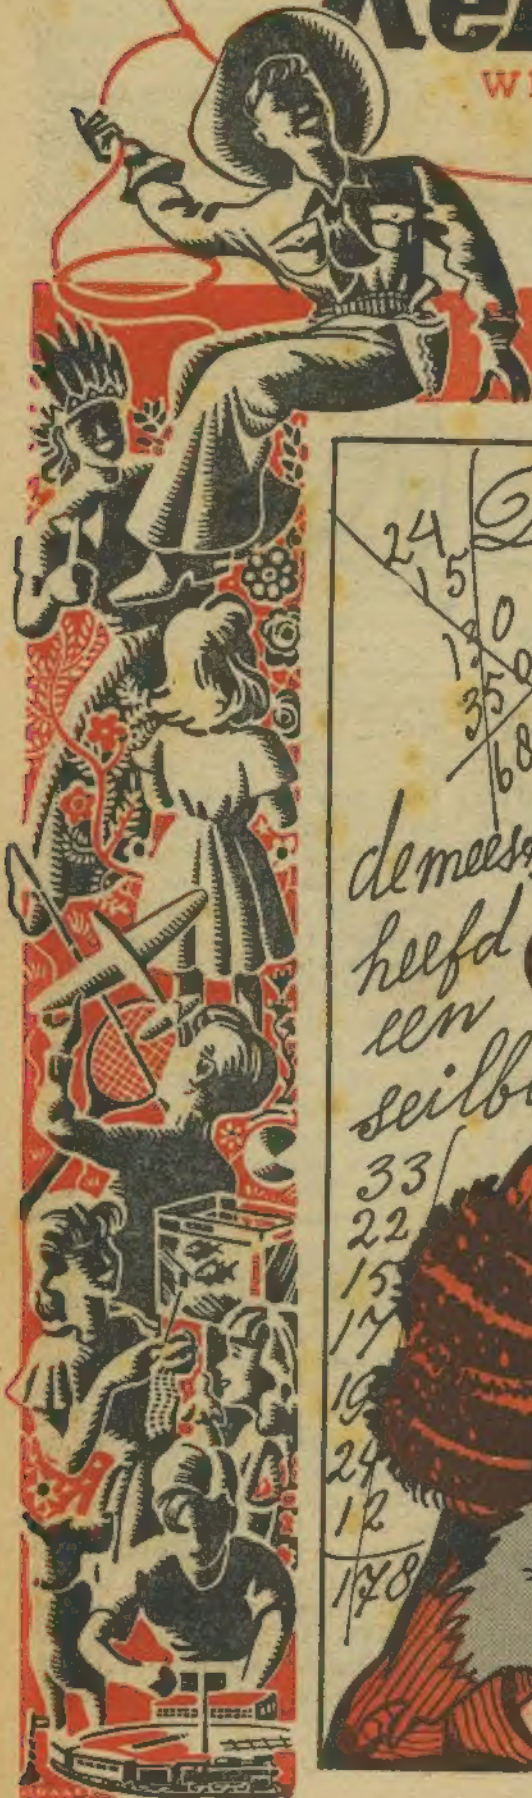 24
15
0
35
68
de mees
heefd
een
seilb
33
22
15
17
19
24
12
178